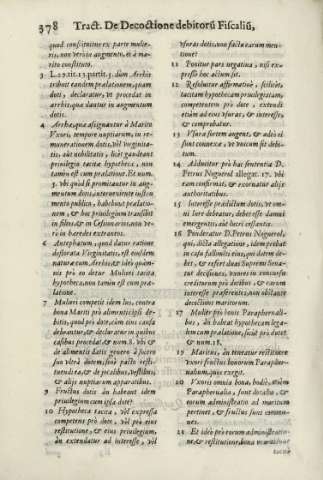 378 Tract. De Decoctione debitorũ Fiscaliũ,
quod constituitur ex parte mulie-
ris, non verò in augmento, et à ma-
rito constituto.
3 L. 29. tit. 13. partit. 5. dum Archis
tribuit eandem prælationem, quam
doti, declaratur, vt procedat in
archis, quæ dantur in augmentum
dotis.
4 Archæ, quæ assignantur à Marito
Vxori, tempore nuptiarum, in re-
munerationem dotis, vel virginita-
tis, aut nobilitatis, licèt gaudeant
priuilegio tacitæ hypothecæ, non
tamèn est cum prælatione. Et num.
5. vbi quòd si promittantur in aug-
mentum dotis, interueniente instru-
mento publico, habebunt prælatio-
nem, & hoc priuilegium transibit
in filios, & in Cessionarium non ve-
rò in hæredes extraneos.
6 Antiphatum, quod datur ratione
defloratæ Virginitatis, est eiusdem
naturæ cum Archis, & ideò quàm-
uis pro eo detur Mulieri tacita
hypotheca, non tamèn est cum præ-
latione.
7 Mulieri competit idem ius, contra
bona Mariti pro alimentis sibi de-
bitis, quod pro dote, cum eius causa
debeantur, & declaratur in quibus
casibus procedat. & num. 8. vbi &
de alimentis datis genero à socero
sin vltra dotem, sint pars resti-
tuenda, & de jocalibus, vestibus,
& alijs nuptiarum apparatibus.
9 Fructus dotis an habeant idem
priuilegium cum ipsa dote?
10 Hypotheca tacita, vel expressa
competens pro dote, vel pro eius
restitutione, & eius priuilegium,
an extendatur ad interesse, vel
vsuras dotis, non facta earum men-
tione?
11 Ponitur pars negatiua, nisi ex-
pressè hoc actum sit.
12 Resoluitur affirmatiuè, scilicèt,
tacitam hypothecam priuilegiatam,
competentem pro dote, extendi
etiàm ad eius vsuras, & interesse,
& comprobatur.
13 Vsura sortem augent, & adeò ei
sunt connexæ, vt vocum sit debi-
tum.
14 Adducitur pro hac sententia D.
Petrus Noguerol allegat. 17. vbi
eam confirmat, & exornatur alijs
authoritatibus.
15 Interesse prædictum dotis, vt om-
ni iure debeatur, debet esse damni
emergentis, aut lucri cessantis.
16 Ponderatur D. Petrus Noguerol,
qui, dicta allegatione, idem probat
in casu fallimenti eius, qui dotem de-
bet, & refert duas Supremi Sena-
tus decisiones, vxores in concursu
creditorum pro dotibus, & earum
interesse præferentes, non obstante
decoctione maritorum.
17 Mulier pro bonis Paraphernali-
bus, an habeat hypothecam lega-
lem cum prælatione, sicut pro dote?
& num. 18.
19 Maritus, an teneatur restituere
vxori fructus bonorum Parapher-
nalium, quos exegit.
20 Vxoris omnia bona, hodiè, etiàm
Paraphernalia, sunt dotalia, &
eorum administratio ad maritum
pertinet, & fructus sunt commu-
nes.
21 Et ideò pro eorum administratio-
ne, & restitutione, bona mariti sunt